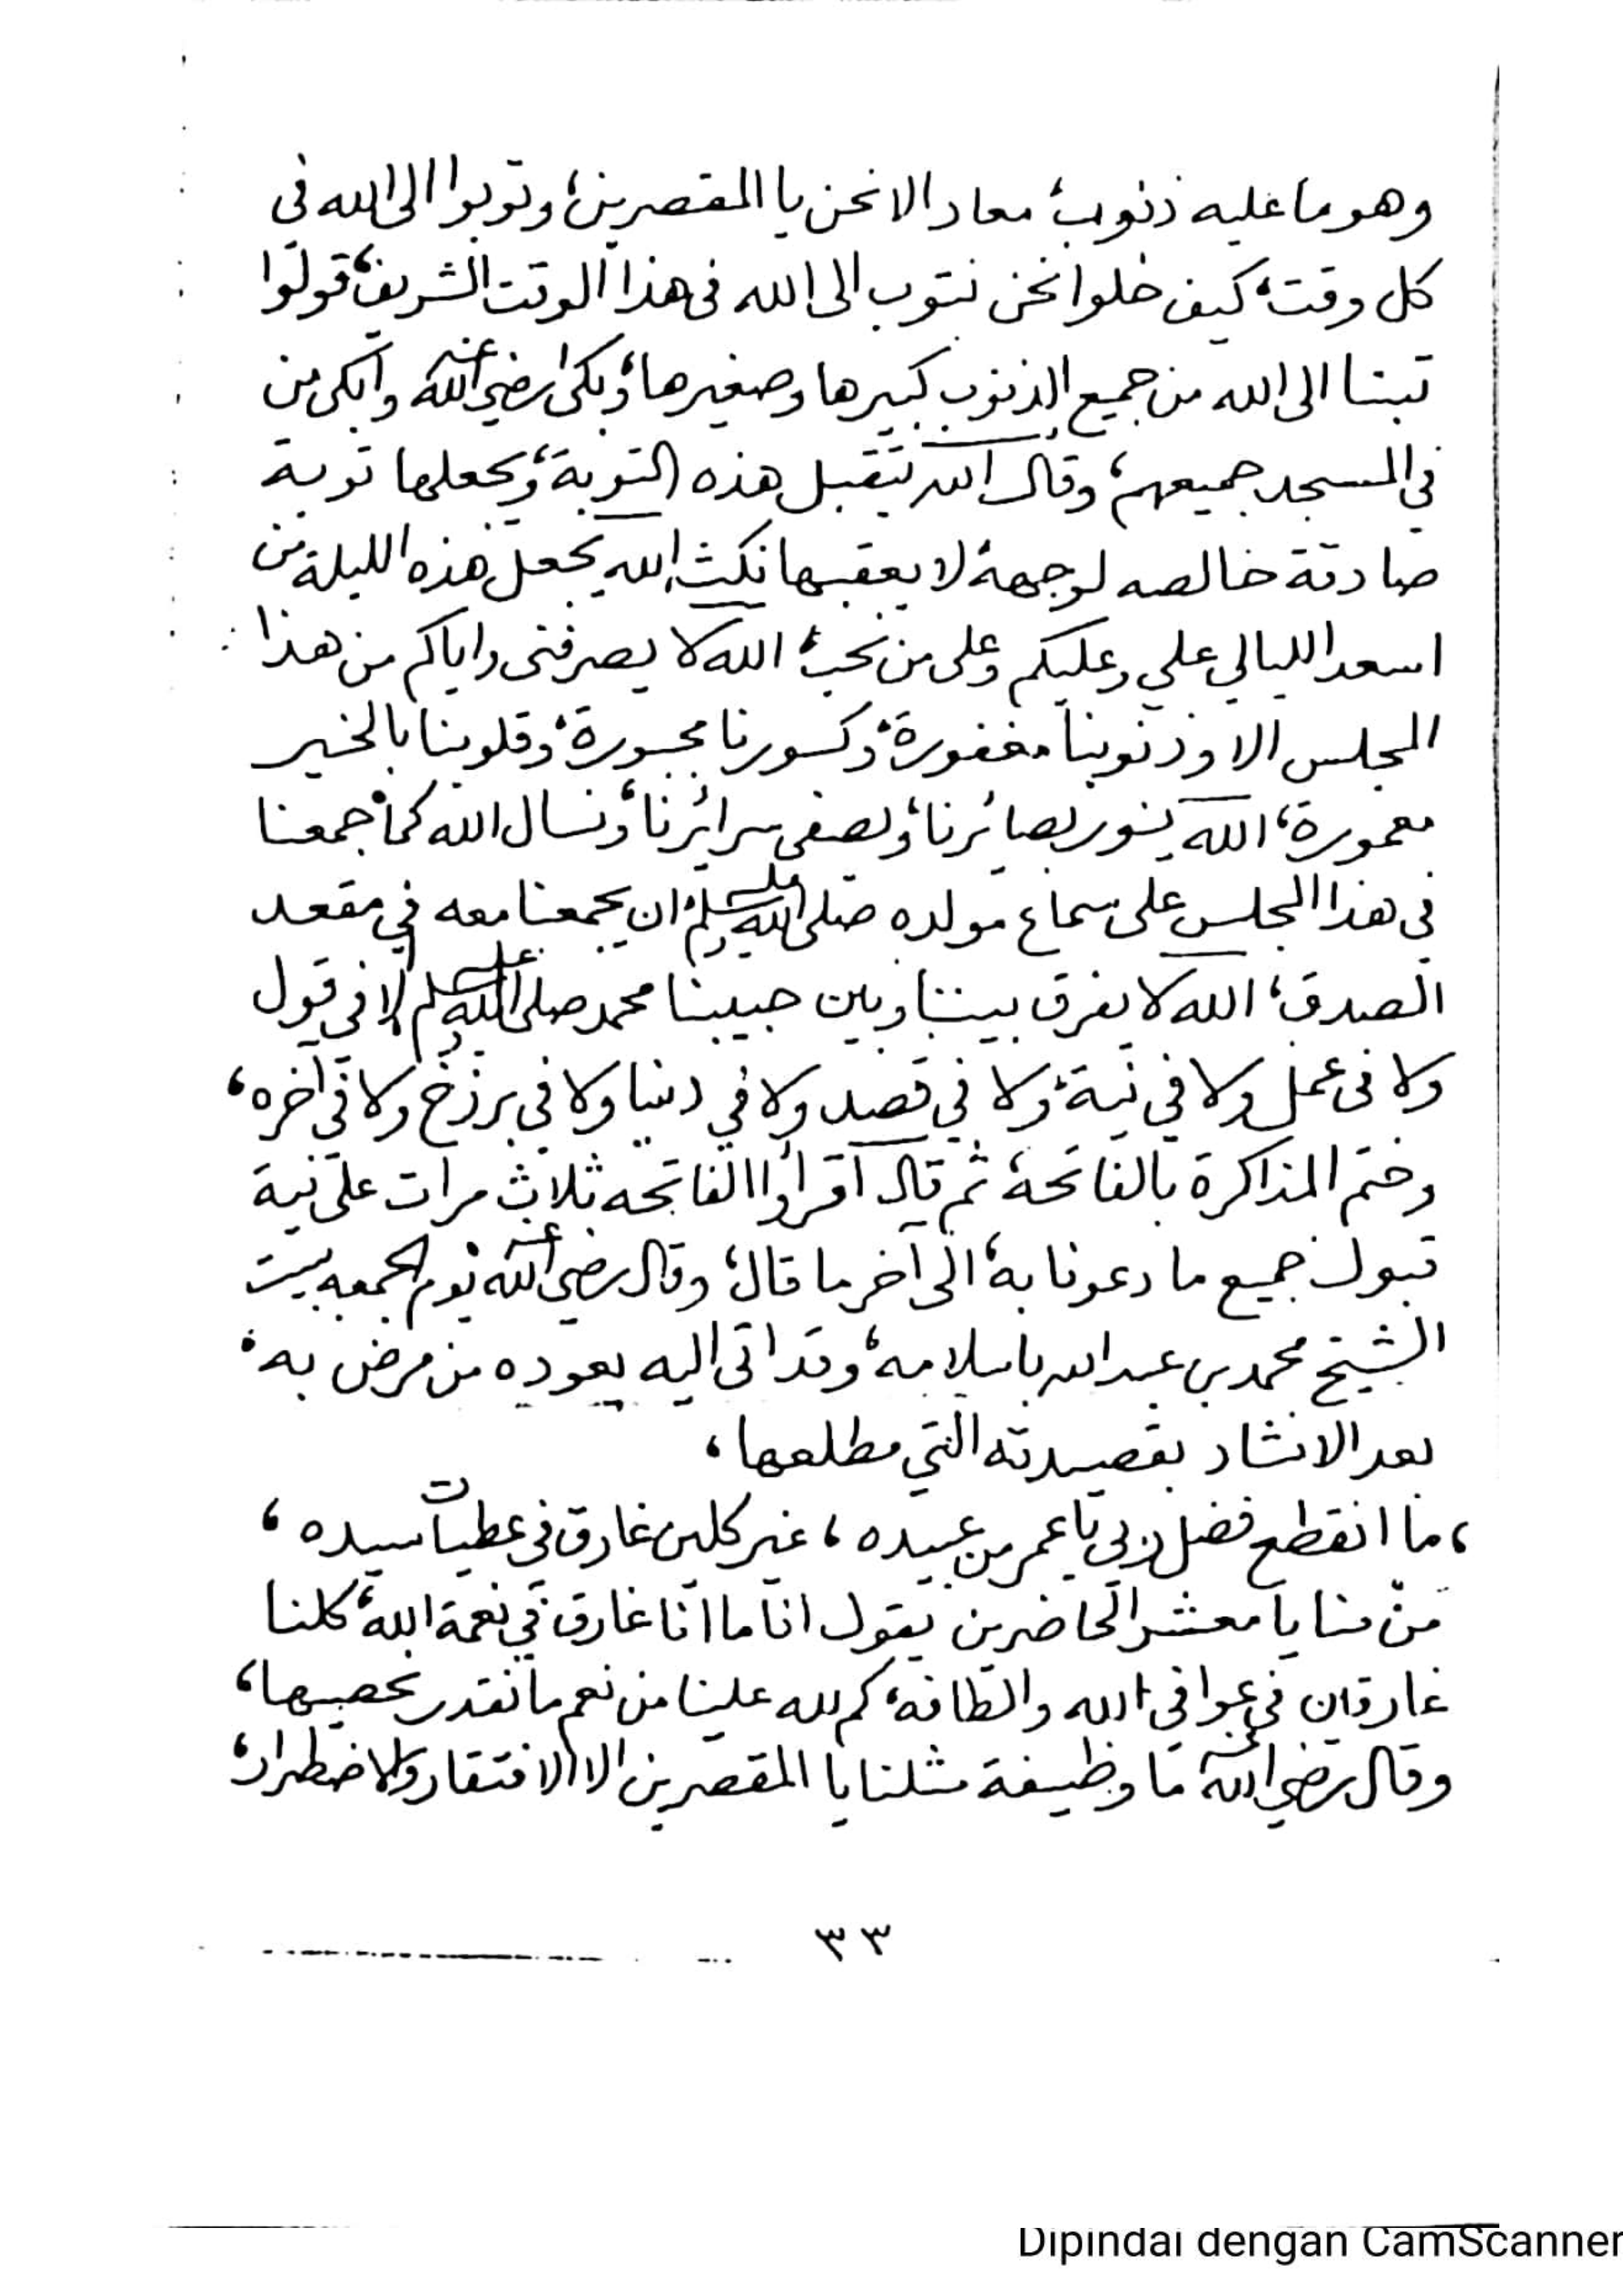 وهو ما عليه ذنوب، معاد الا نحن يا المقصرين، وتوبوا الى الله فى
كل وقت، كيف خلوا نحن نتوب الى الله فى هذا الوقت الشريف، قولوا
تبنا الى الله من جميع الذنوب كبيرها وصغيرها، وبكى رضي الله عنه وابكى من
في المسجد جميعهم، وقال الله يتقبل هذه التوبة، ويجعلها توبة
صادقة خالصه لوجهه لا يعقبها نكث، الله يجعل هذه الليلة من
اسعد الليالي علي وعليكم وعلى من نحب، الله لا يصرفنى واياكم من هذا
المجلس الا وذنوبنا مغفورة، وكسورنا مجبورة، وقلوبنا بالخير
معمورة، الله ينور بصائرنا، ويصفى سرائرنا، ونسال الله كما جمعنا
فى هذا المجلس على سماع مولده صلى الله عليه وسلم، ان يجمعنا معه في مقعد
الصدق، الله لا يفرق بيننا وبين حبيبنا محمد صلى الله عليه وسلم لا فى قول
ولا فى عمل ولا في نية، ولا في قصد ولا في دنيا ولا في برزخ ولا في اخره،
وختم المذاكرة بالفاتحة، ثم قال اقرأوا الفاتحه ثلاث مرات على نية
قبول جميع ما دعونا به، الى آخر ما قال، وقال رضي الله عنه يوم الجمعه ببيت
الشيخ محمد بن عبد الله باسلامه، وقد اتى اليه يعوده من مرض به،
بعد الانشاد بقصيدته التي مطلعها،
، ما انقطع فضل ربي يا عمر من عبيده ، غير كلين غارق في عطيات سيده ،
منّ منا يا معشر الحاضرين يقول انا ما انا غارق في نعمة الله، كلنا
غارقان في عوافي الله والطافه، كم لله علينا من نعم ما نقدر نحصيها،
وقال رضي الله عنه ما وظيفة مثلنا يا المقصرين الا الافتقار والاضطرار،
٣٣
Dipindai dengan CamScanner